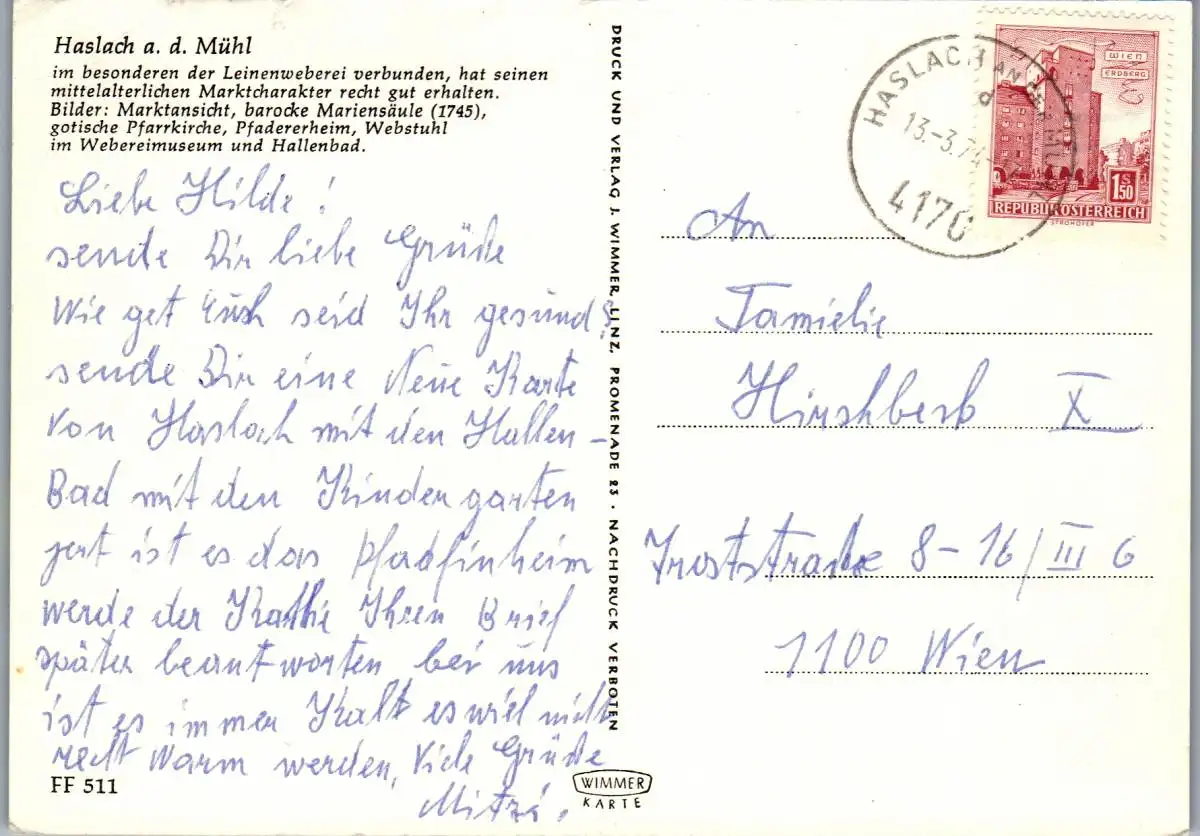 Haslach a. d. Mühl
im besonderen der Leinenweberei verbunden, hat seinen
mittelalterlichen Marktcharakter recht gut erhalten.
Bilder: Marktansicht, barocke Mariensäule (1745),
gotische Pfarrkirche, Pfadererheim, Webstuhl
im Webereimuseum und Hallenbad.
Liebe Hilde!
sende Dir liebe Grüße
Wie get Euch seid Ihr gesund?
sende Dir eine Neue Karte
Von Haslach mit den Hallen-
Bad mit den Kindergarten
jezt ist es das Pfadfinheim
werde der Kathi Ihren Brief
später beantworten bei uns
ist es immer Kalt, es wiel nicht
recht Warm werden, Viele Grüße
Mitzi.
FF 511
DRUCK UND VERLAG J. WIMMER, LINZ, PROMENADE 23 · NACHDRUCK VERBOTEN
WIMMER
KARTE
HASLACH AN DER MÜHL
d
13.-3.74
4170
WIEN
ERDBERG
1 S 50
REPUBLIK ÖSTERREICH
STROHOFER
An
Tamielie
Hirshberk X
Troststraße 8-16/III 6
1100 Wien